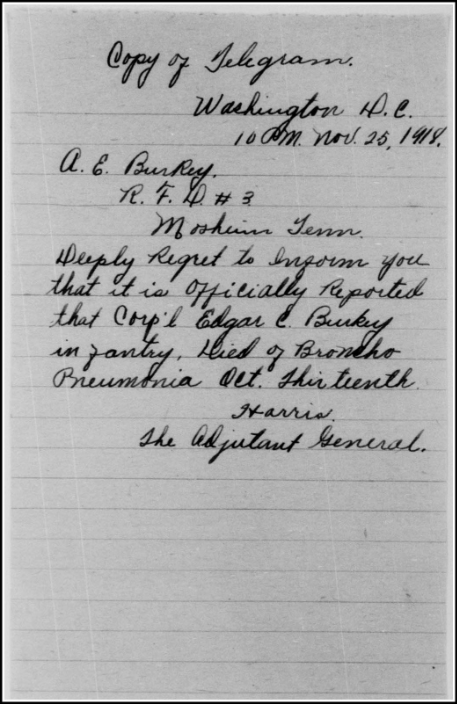 Copy of Telegram.
Washington D.C.
10 P.M. Nov. 25, 1918.
A. E. Burkey.
R. F. D. # 3
Mosheim Tenn.
Deeply Regret to Inform you
that it is Officially Reported
that Corp'l Edgar C. Burkey
infantry, Died of Broncho
Pneumonia Oct. Thirteenth.
Harris.
The Adjutant General.